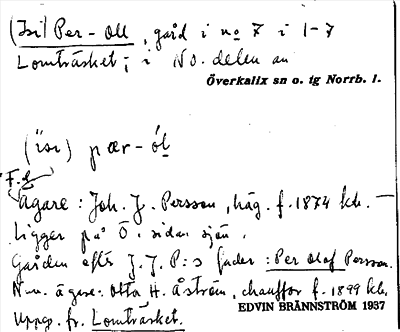 (Isi) Per-Oll, gård i no 7 i 1-7
Lomträsket; i NO. delen av
Överkalix sn o. tg Norrb. l.
(ïsı) pær-ól
F.d.
Ägare: Joh. J. Persson, häg. f. 1874 kb. —
Ligger på Ö. sidan sjön.
Gården efter J. J. P:s fader: Per Olof Persson.
N.v. ägare: Otto H. Åström, chaufför f. 1899 kb.
EDVIN BRÄNNSTRÖM 1937
Uppg. fr. Lomträsket.